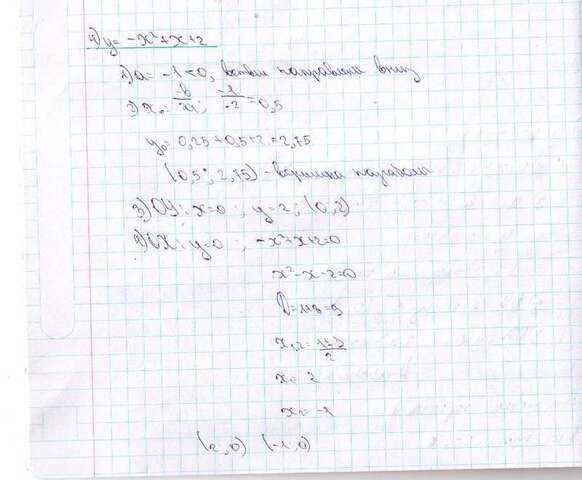 4) y = -x²+x+2
1) a = -1 < 0, ветви направлены вниз
2) x₀ = -b/2a; -1/-2 = 0,5
y₀ = 0,25+0,5+2=2,75
(0,5; 2,75) - вершина параболы
3) OY: x=0; y=2; (0;2)
4) OX: y=0; -x²+x+2=0
x²-x-2=0
D=1+8=9
x₁,₂ = 1±3/2
x₁ = 2
x₂ = -1
(2;0) (-1;0)